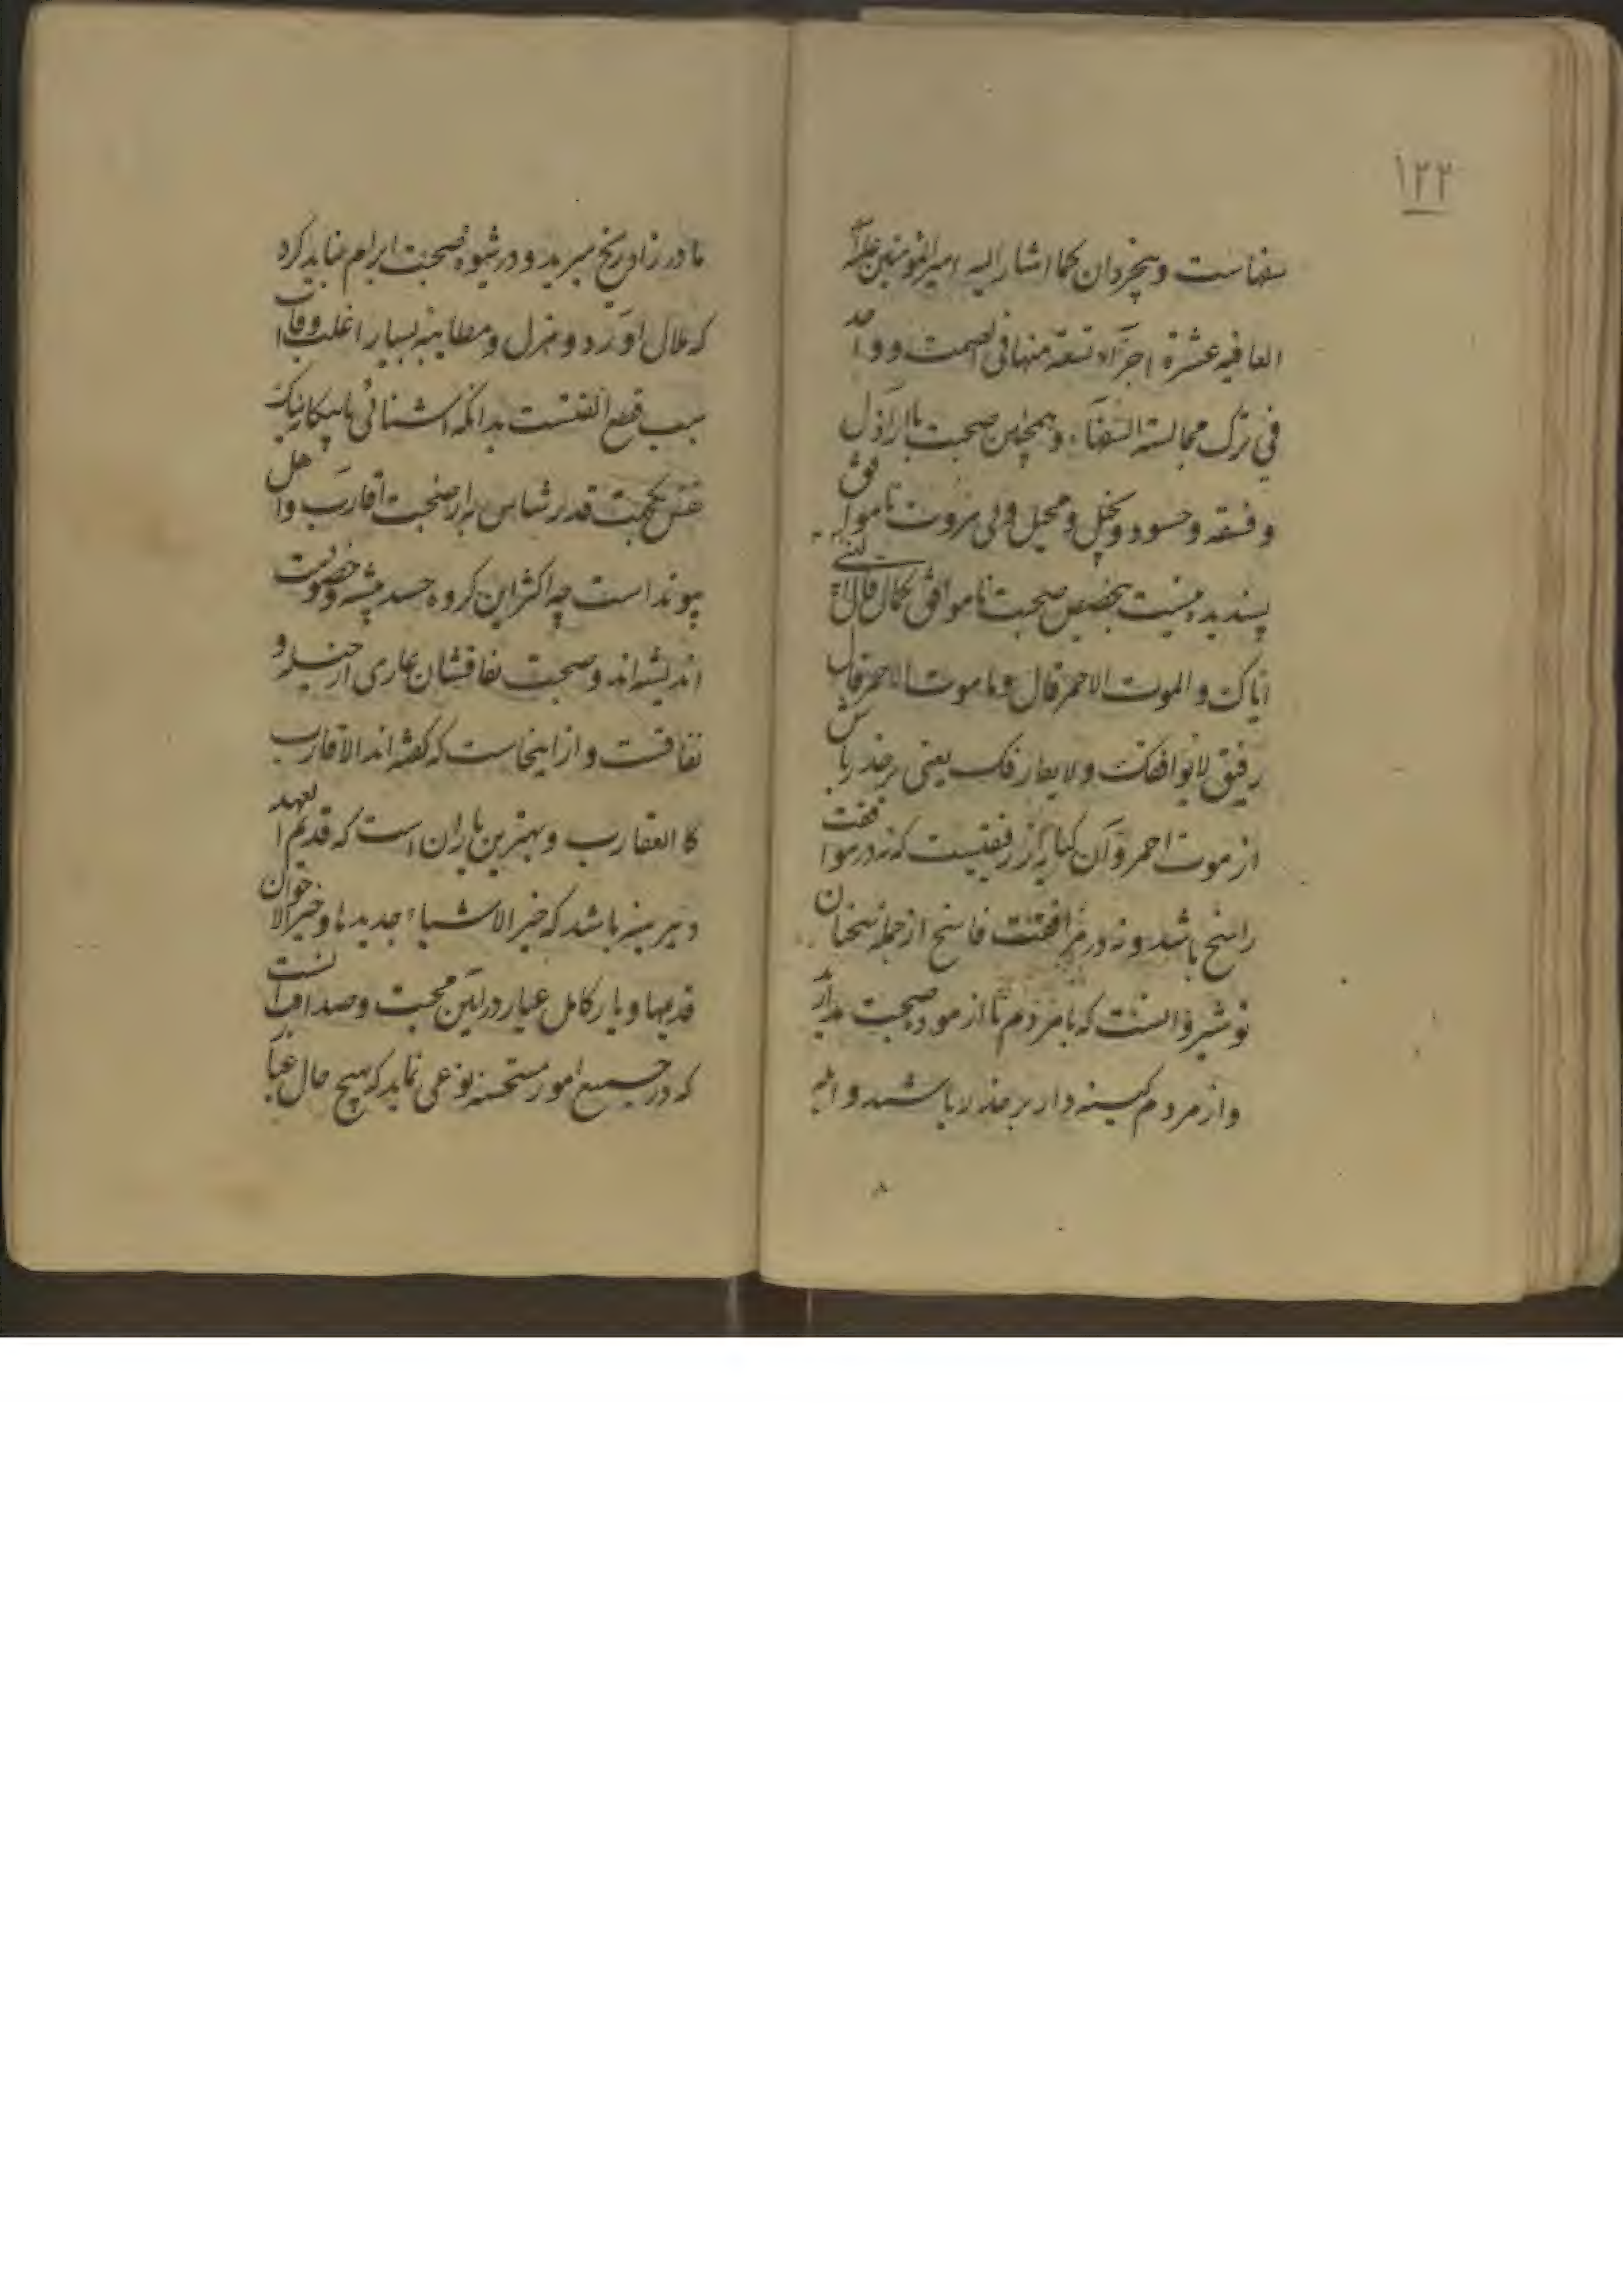 ۱۲۲
سفهاست و بیخردان کما اشار الیه امیر المؤمنین علیه
العافیه عشرة اجزآء تسعة منها فی الصمت و واحد
فی ترک مجالسة السفهآء و همچنین صحبت با اراذل
و فسقه و حسود و بخیل و محیل و بی مروت ناموافق
پسندیده نیست بخصیص صحبت ناموافق کما قال
ایاک و الموت الاحمر قال و ما موت الاحمر قال
رفیق لا یوافقک و لا یفارقک یعنی برحذر باش
از موت احمر و آن کنایه از رفیقیست که نه در موافقت
راسخ باشد و نه در مرافقت فاسخ از جمله سخنان
نوشیروانست که با مردم ناآزموده صحبت مدارید
و از مردم کینه دار برحذر باشید و
مادرزاد رنج مبرید و در شیوهٔ صحبت ابرام نباید کرد
که ملال آورد و هزل و مطایبه بسیار اغلب اوقات
سبب قطع الفتست بدانکه آشنائی با بیکانیک
محبت قدرشناس به از صحبت اقارب و اهل
پیوند است چه اکثر این کروه حسد پیشه و خصومت
اندیشه اند و صحبت نفاقشان عاری از حیله و
نفاقست و از اینجاست که کفته اند الاقارب
کالعقارب و بهترین یاران است که قدیم العهد
و دیرینه باشد که خیر الاشیاء جدیدها و خیر الاخوان
قدیمها و یار کامل عیار در آیین محبت و صداقت آنست
که در جمیع امور مستحسنه نوعی نماید که بهیچ حال غبار